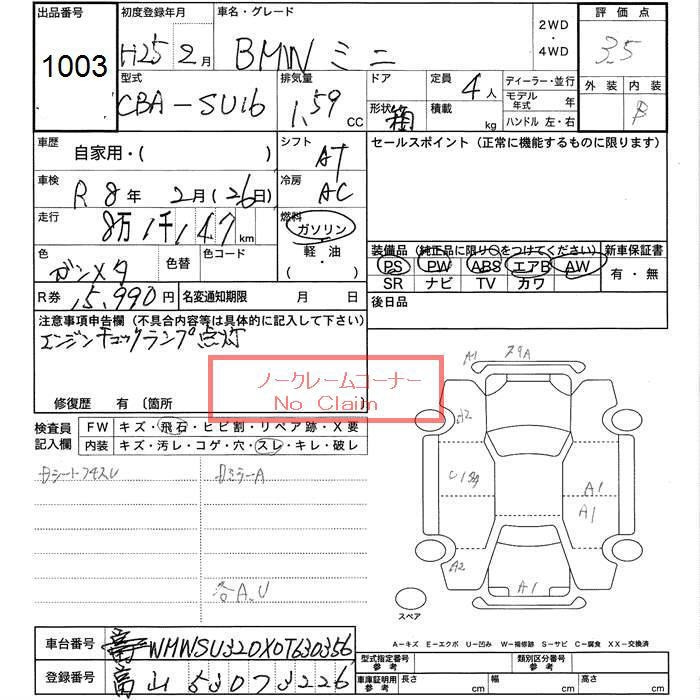 出品番号 初度登録年月 車名・グレード 評価点
1003 H25 2月 BMW ミニ 2WD・4WD 3.5
型式 排気量 ドア 定員 4人 ディーラー・並行 外装 内装
CBA-SU16 1.59 CC 形状 箱 積載 kg モデル年式 年 B
ハンドル 左・右
車歴 自家用・( ) シフト AT セールスポイント (正常に機能するものに限ります)
車検 R8年 2月(26日) 冷房 AC
走行 8万1千147km 燃料 ガソリン
軽・油
( ・ )
色 ガンメタ 色替 色コード
装備品 (純正品に限り○をつけてください) 新車保証書
PS PW ABS エアB AW 有・無
SR ナビ TV カワ
R券 15,990円 名変通知期限 月 日 後日品
注意事項申告欄 (不具合内容等は具体的に記入して下さい)
エンジンチェックランプ点灯
ノークレームコーナー
No Claim
修復歴 有 〔箇所 〕
検査員記入欄 FW キズ・飛石・ヒビ割・リペア跡・X要
内装 キズ・汚レ・コゲ・穴・スレ・キレ・破レ
ミラーA
各A.U
A1
A2
A1
A1
A2
A1
スペア
A-キズ E-エクボ U-凹み W-補修跡 S-サビ C-腐食 XX-交換済
車台番号 WMWSU320X0T630356
登録番号 富山 530 フ 3226
型式指定番号 参考 類別区分番号 参考
車庫証明用 参考 長さ cm 幅 cm 高さ cm